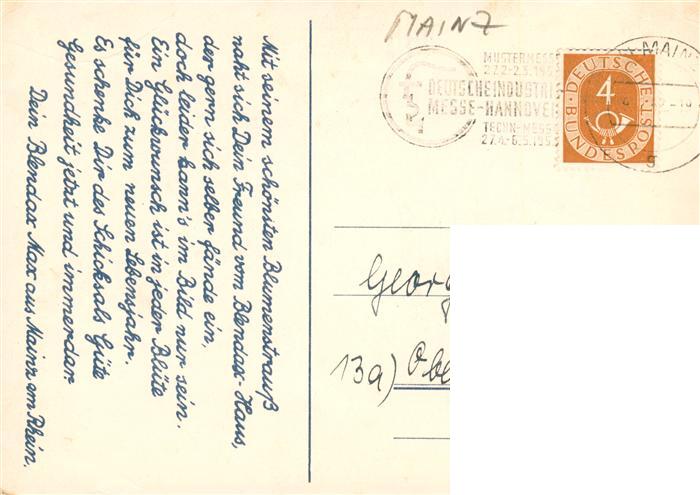 Mit seinem schönsten Blumenstrauß
naht sich Dein Freund vom Blendax-Haus,
der gern sich selber fände ein,
doch leider kann's im Bild nur sein.
Ein Glückwunsch ist in jeder Blüte
für Dich zum neuen Lebensjahr.
Es schenke Dir des Schicksals Güte
Gesundheit jetzt und immerdar
Dein Blendax Max aus Mainz am Rhein.
MAINZ
MUSTERMESSE
DEUTSCHE INDUSTRIE
MESSE-HANNOVER
TECHN. MESSE
MAIN
DEUTSCHE
4
BUNDESPOST
g
Georg
13a) Obe